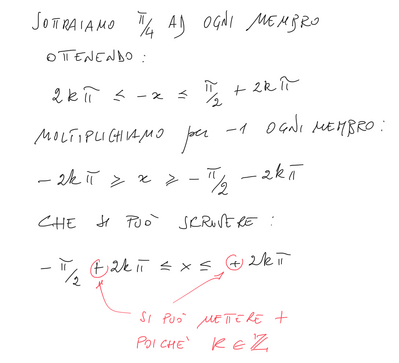 SOTTRAIAMO π/4 AD OGNI MEMBRO
OTTENENDO:
2kπ ≤ -x ≤ π/2 + 2kπ
MOLTIPLICHIAMO per -1 OGNI MEMBRO:
-2kπ ≥ x ≥ -π/2 - 2kπ
CHE SI PUÒ SCRIVERE:
-π/2 + 2kπ ≤ x ≤ + 2kπ
SI PUÒ METTERE +
POICHÈ K ∈ ℤ